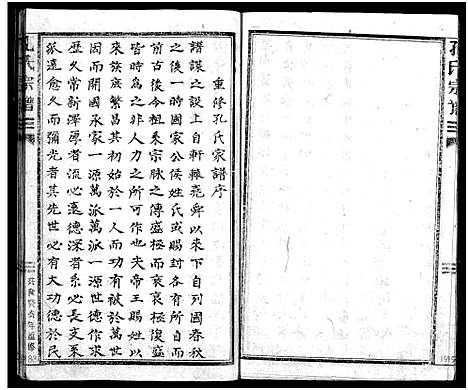 孔氏宗譜
重修孔氏家譜序
譜諜之設上自軒轅堯舜以來下自列國春秋
之後一時國家公候姓氏或賜封者所自有然
前古後今祖系宗脉之傳盛極而衰衰極復盛
皆時為之非人力之所可作也天帝王賜姓以
來族庶繁昌其初始於一人功有被於萬世
因而開國承家一源萬派萬派一源世德作求
歷久常新澤厚者流必遠德深者系必長支系
派遠愈久而彌光者其先世必有大功德於民
孔氏宗譜